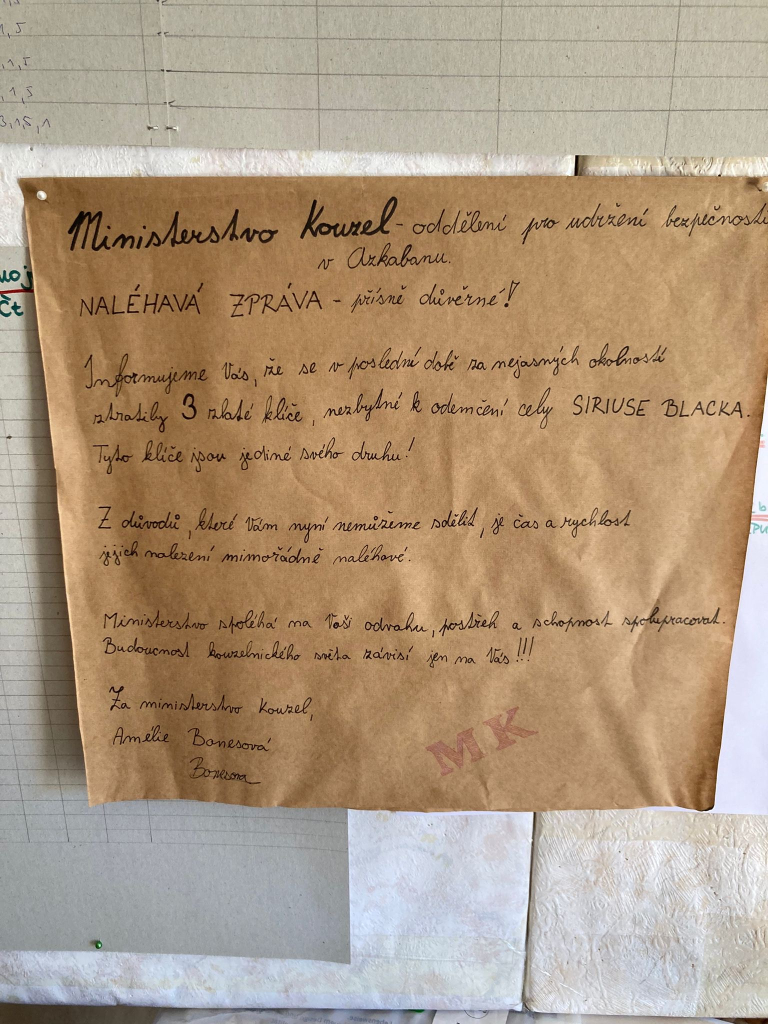 1,5
1,5
1,5
3,1,5,1
Ministerstvo Kouzel - oddělení pro udržení bezpečnosti
v Azkabanu.
NALÉHAVÁ ZPRÁVA - přísně důvěrné!
Informujeme Vás, že se v poslední době za nejasných okolností
ztratily 3 zlaté klíče, nezbytné k odemčení cely SIRIUSE BLACKA.
Tyto klíče jsou jediné svého druhu!
Z důvodů, které Vám nyní nemůžeme sdělit, je čas a rychlost
jejich nalezení mimořádně naléhavé.
Ministerstvo spoléhá na Vaši odvahu, postřeh a schopnost spolupracovat.
Budoucnost kouzelnického světa závisí jen na Vás!!!
Za ministerstvo kouzel,
Amélie Bonesová
Bonesova
MK
Čt